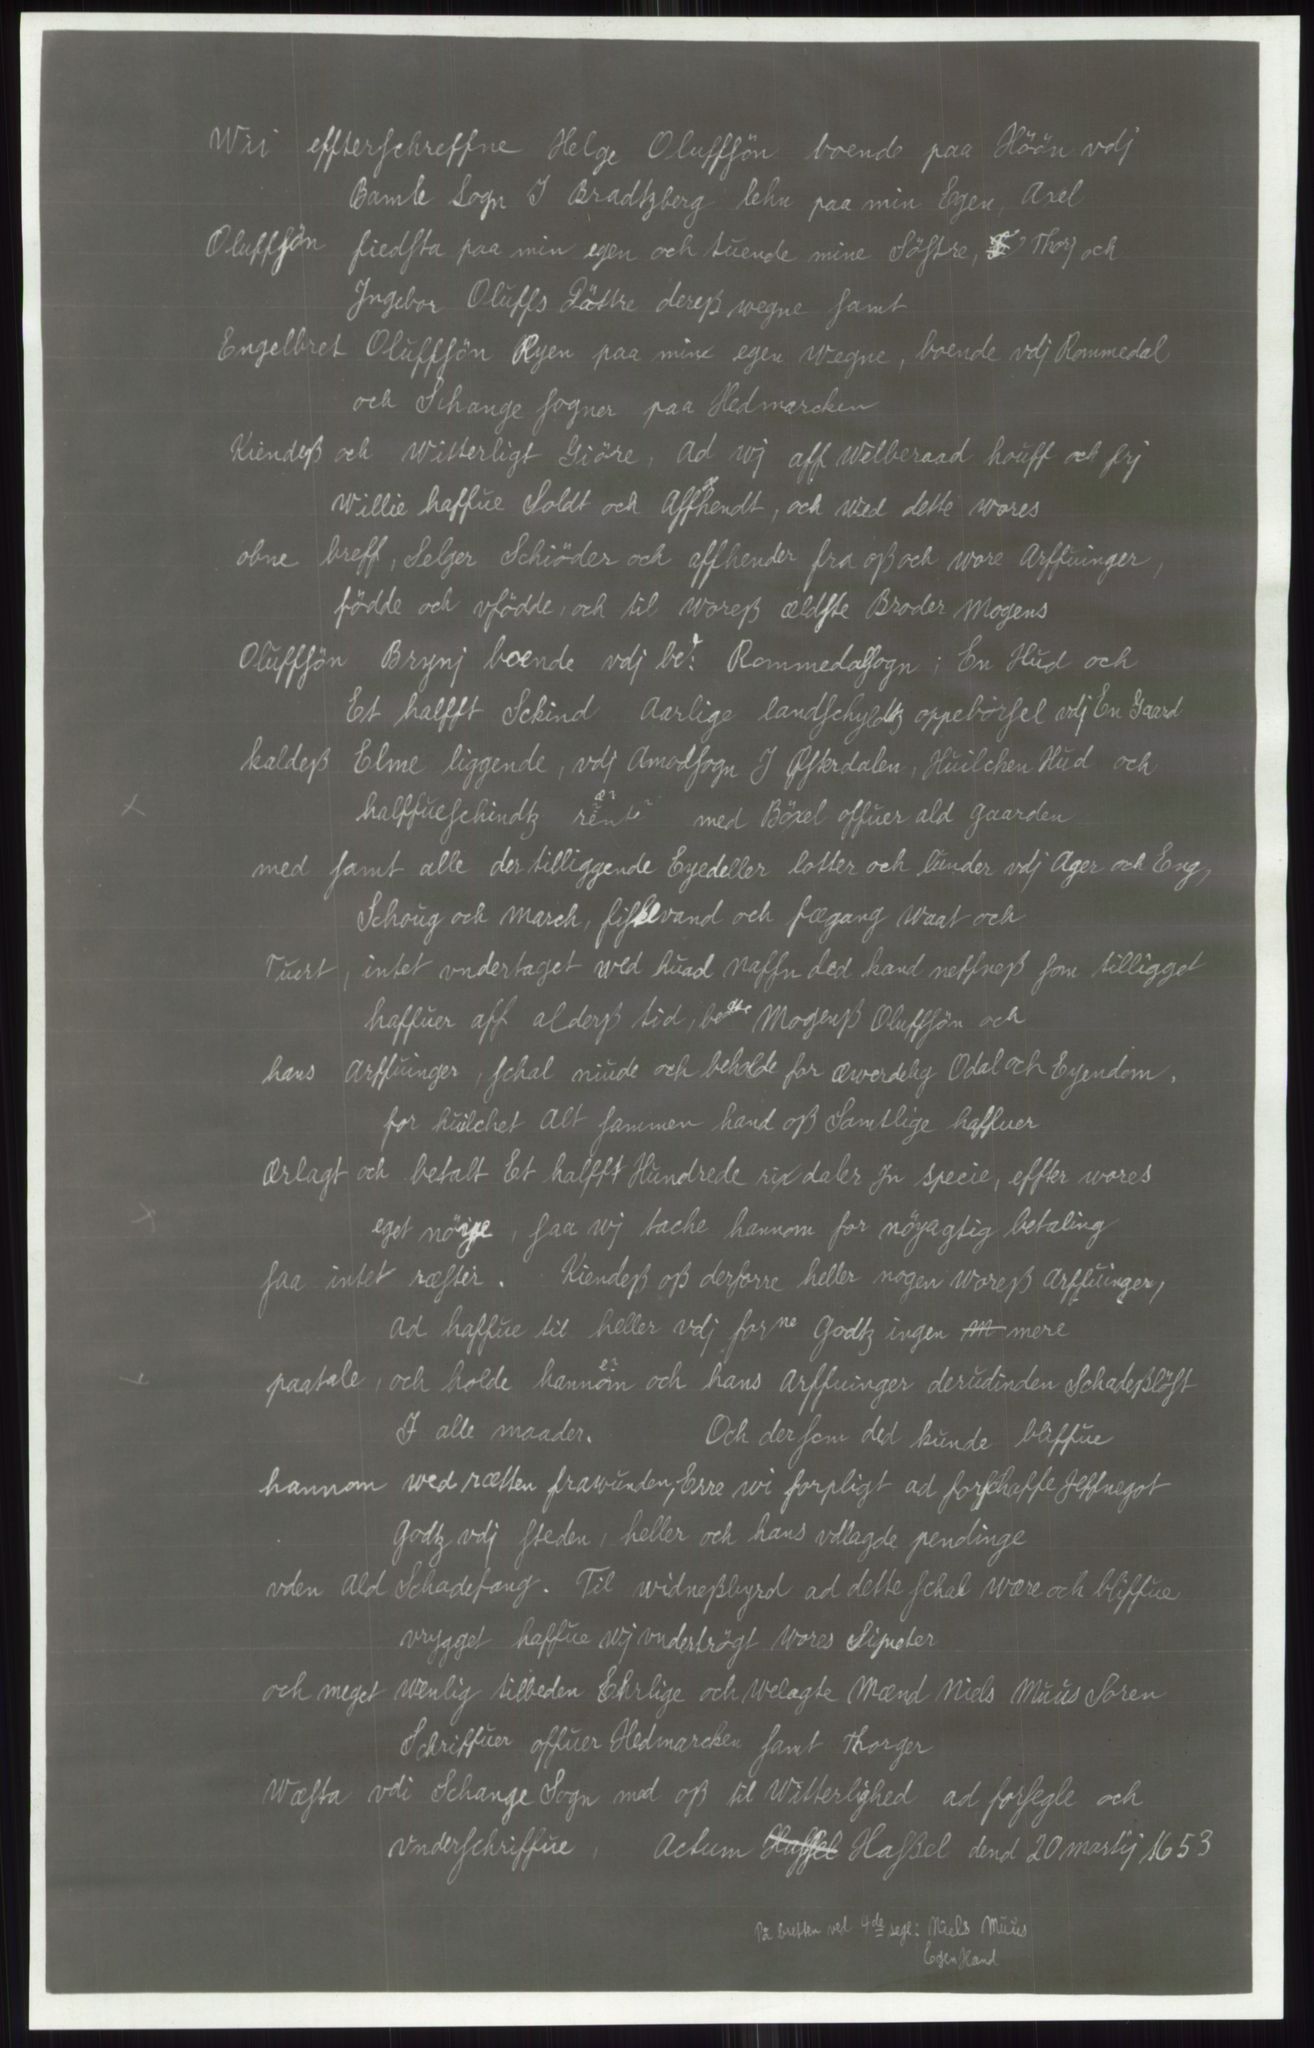 Wii effterschreffne Helge Oluffsön boende paa Höön vdj
Bamle Sogn I Bradtzberg lehn paa min Egen, Axel
Oluffsön fiedsta paa min egen och tuende mine Söstre, Thorj och
Ingebor Oluffs Döttre dereß wegne samt
Engelbret Oluffsön Ryen paa min egen wegne, boende vdj Rommedal
och Schange sogner paa Hedmarcken
Kiendeß och witterligt Giöre, Ad wj aff Welberaad houff och frj
willie haffue Soldt och Affhendt, och wed dette wores
obne breff, Selger Schiöder och affhender fra oß och wore Arffuinger,
födde och vfödde, och til woreß ældste Broder Mogens
Oluffsön Brynj boende vdj bet: Rommedalsogn; En Hud och
Et halfft Sckind Aarlige landschyldtz oppebörsel vdj En Gaard
kaldeß Elme liggende, vdj Amodsogn I Østerdalen, Huilchen Hud och
æ?
halffueschindtz rente med Böxel offuer ald gaarden
med samt alle der tilliggende Eyedeller lotter och lunder vdj Ager och Eng,
Schoug och march, fiskevand och fægang waat och
Tuert, intet vndertaget wed huad naffn ded kand neffneß som tilligget
haffuer aff alderß tid, bete Mogenß Oluffsön och
hans Arffuinger, schal niude och beholde for æwerdelig Odal och Eyendom.
for huilchet Alt sammen hand oß Samtlige haffuer
Ærlagt och betalt Et halfft Hundrede rix daler Jn specie, effter wores
eget nöije, saa wj tache hannom for nöyagtig betaling
saa intet ræster. Kiendeß oß derforre heller nogen woreß Arffuinger,
Ad haffue til heller vdj forne Godtz ingen mere
e?
paatale, och holde hannom och hans Arffuinger derudinden Schadeßlöst
I alle maader. Och dersom ded kunde bliffue
hannom wed rætten frawunden, Erre wi forpligt ad forschaffe Jeffnegot
Godtz vdj steden, heller och hans vdlagde pendinge
vden Ald Schadefang. Til widneßbyrd ad dette schal være och bliffue
vrygget haffue wj vndertrögt wores Signeter
och meget wenlig tilbeden Ehrlige och welagte Mænd Niels Muus Soren
Schriffuer offuer Hedmarcken samt Thorger
Wæsta vdi Schange Sogn med oß til Witterlighed ad forsegle och
vnderschriffue, Actum Hassel Haßel dend 20 martij 1653
På bretten ved 4de segl: Niels Muus
Egen Hand